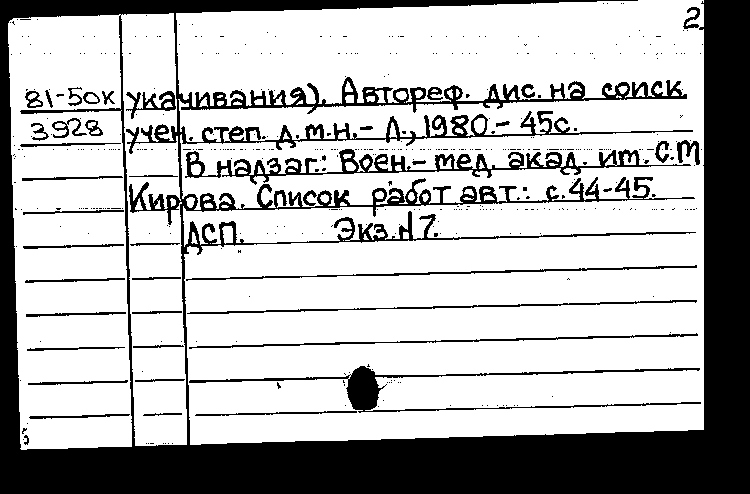 2
81-50к укачивания). Автореф. дис. на соиск.
3928 учен. степ. д.т.н. - Л., 1980. - 45с.
В надзаг.: Воен.-мед. акад. им. С.М
Кирова. Список работ авт.: с.44-45.
ДСП. Экз.N7.